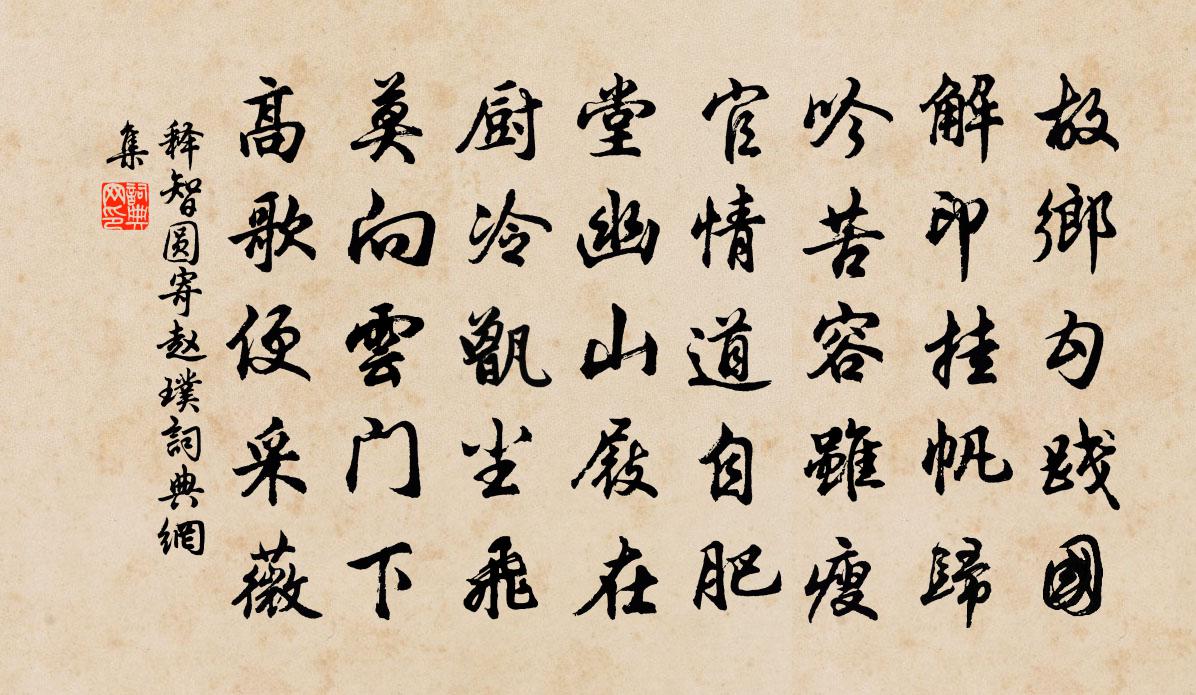 故鄉勾踐國
解印挂帆歸
吟苦容雖瘦
官情道自肥
堂幽山屐在
厨冷甑尘飛
莫向雲门下
高歌便采薇
释智圆寄赵璞詞典網
集
詞典網印